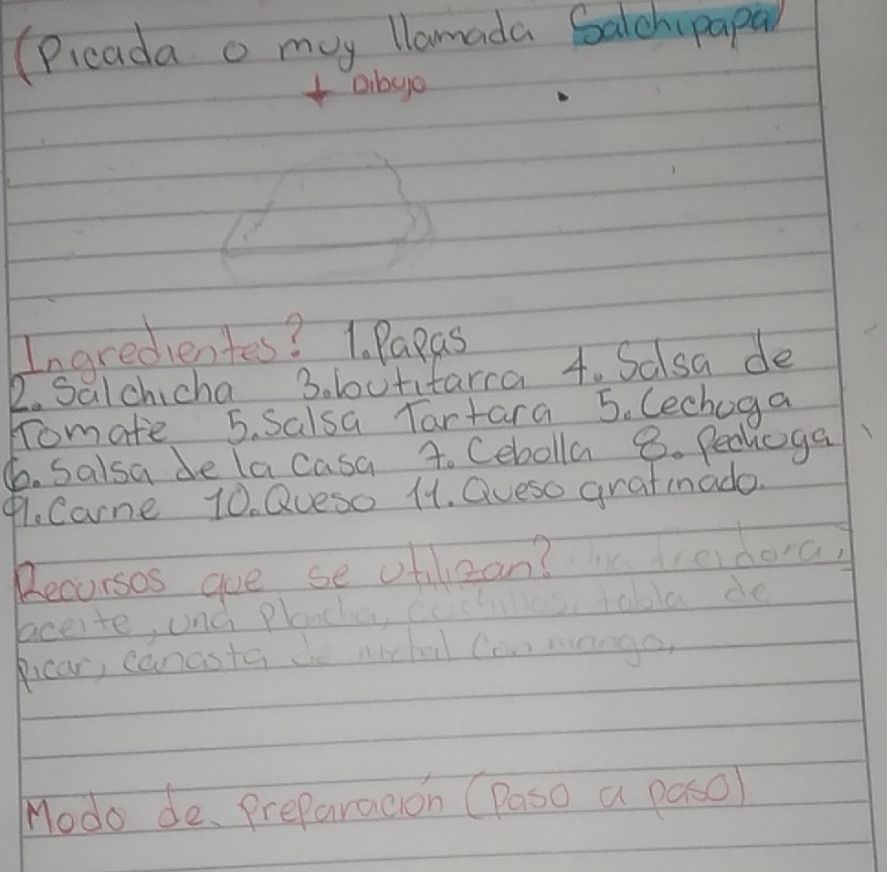 (Picada o muy llamada Salchipapa)
+ Dibujo
Ingredientes? 1. Papas
2. Salchicha 3. butifarra 4. Salsa de
Tomate 5. Salsa Tartara 5. Lechuga
6. Salsa de la Casa 7. Cebolla 8. Pechuga
9. Carne 10. Queso 11. Queso gratinado.
Recursos que se utilizan? una freidora,
aceite, una plancha, cuchillos, tabla de
picar, canasta de metal con mango,
Modo de Preparación (Paso a paso)